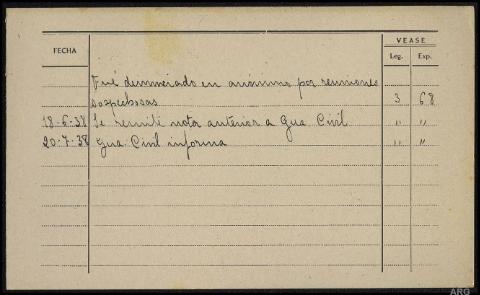 FECHA
VEASE
Leg. Exp.
Fué denunciado en anónimo por reuniones
sospechosas 3 68
18-6-38 Se remite nota anterior a Gua. Civil " "
20-7-38 Gua. Civil informa " "
ARG